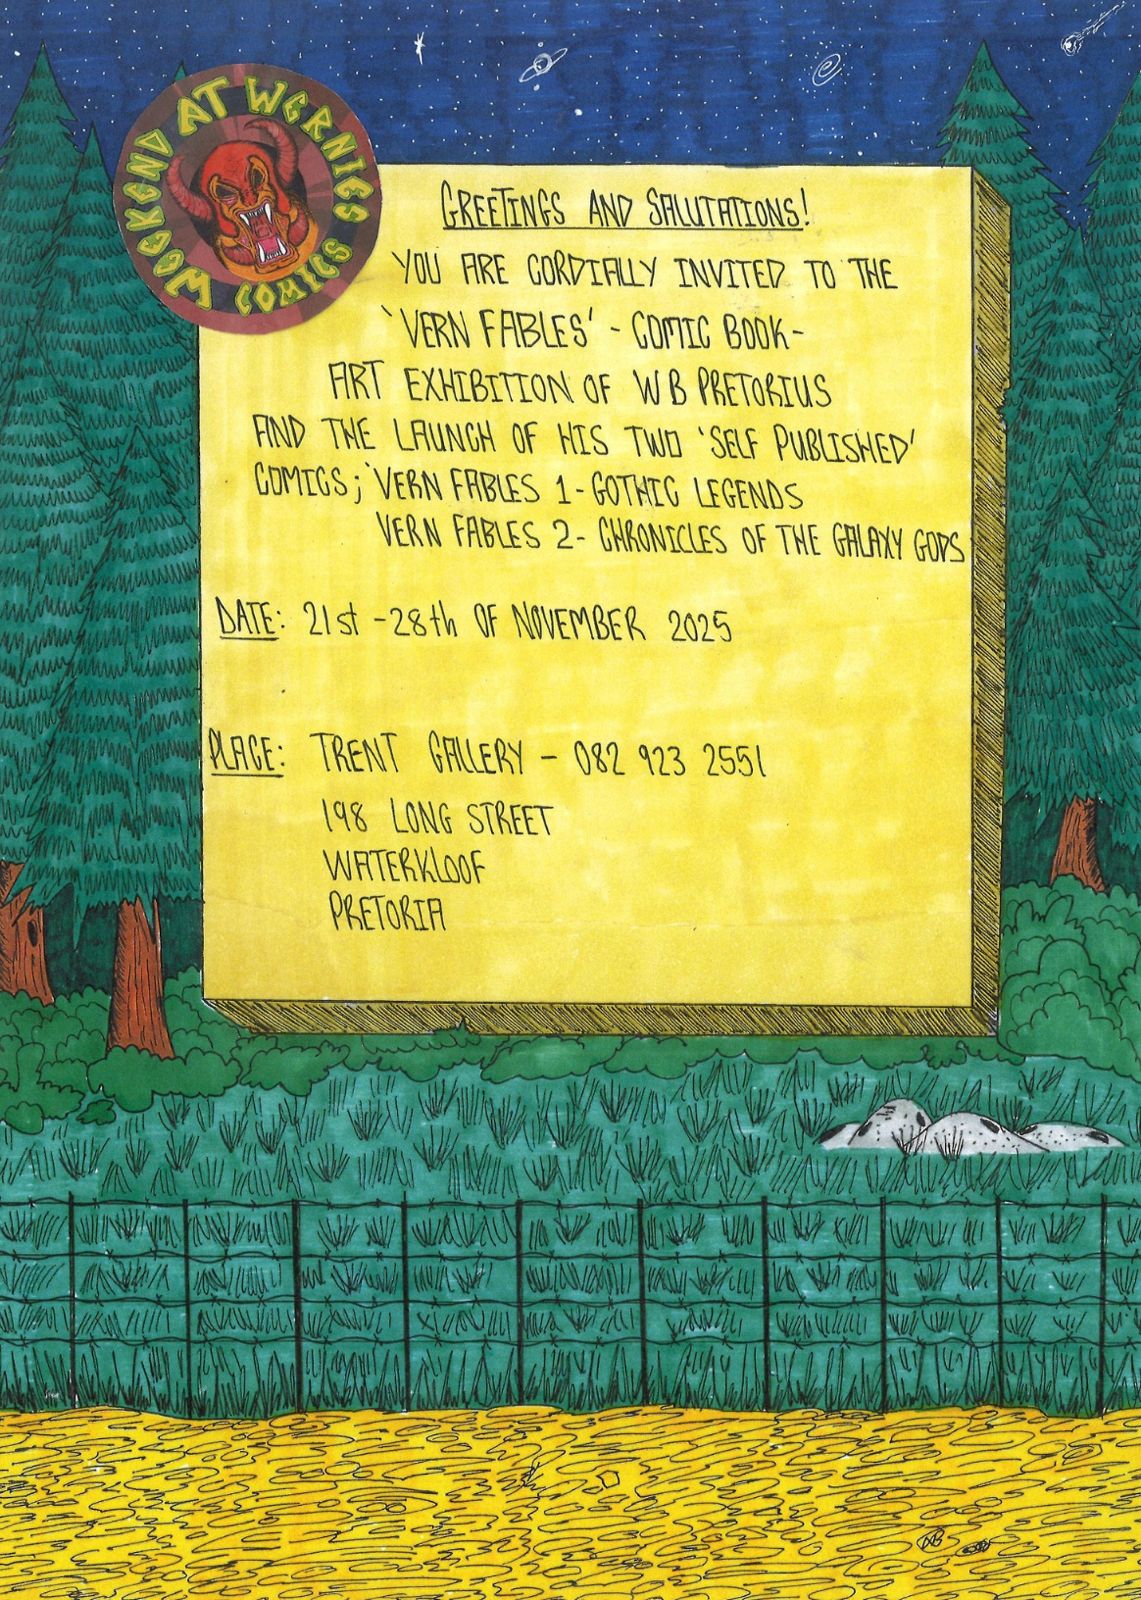 WEEKEND AT WERNIES
COMICS
GREETINGS AND SALUTATIONS!
YOU ARE CORDIALLY INVITED TO THE
'VERN FABLES' - COMIC BOOK -
ART EXHIBITION OF WB PRETORIUS
AND THE LAUNCH OF HIS TWO 'SELF PUBLISHED'
COMICS; 'VERN FABLES 1 - GOTHIC LEGENDS
VERN FABLES 2 - CHRONICLES OF THE GALAXY GODS
DATE: 21st - 28th OF NOVEMBER 2025
PLACE: TRENT GALLERY - 082 923 2551
198 LONG STREET
WATERKLOOF
PRETORIA